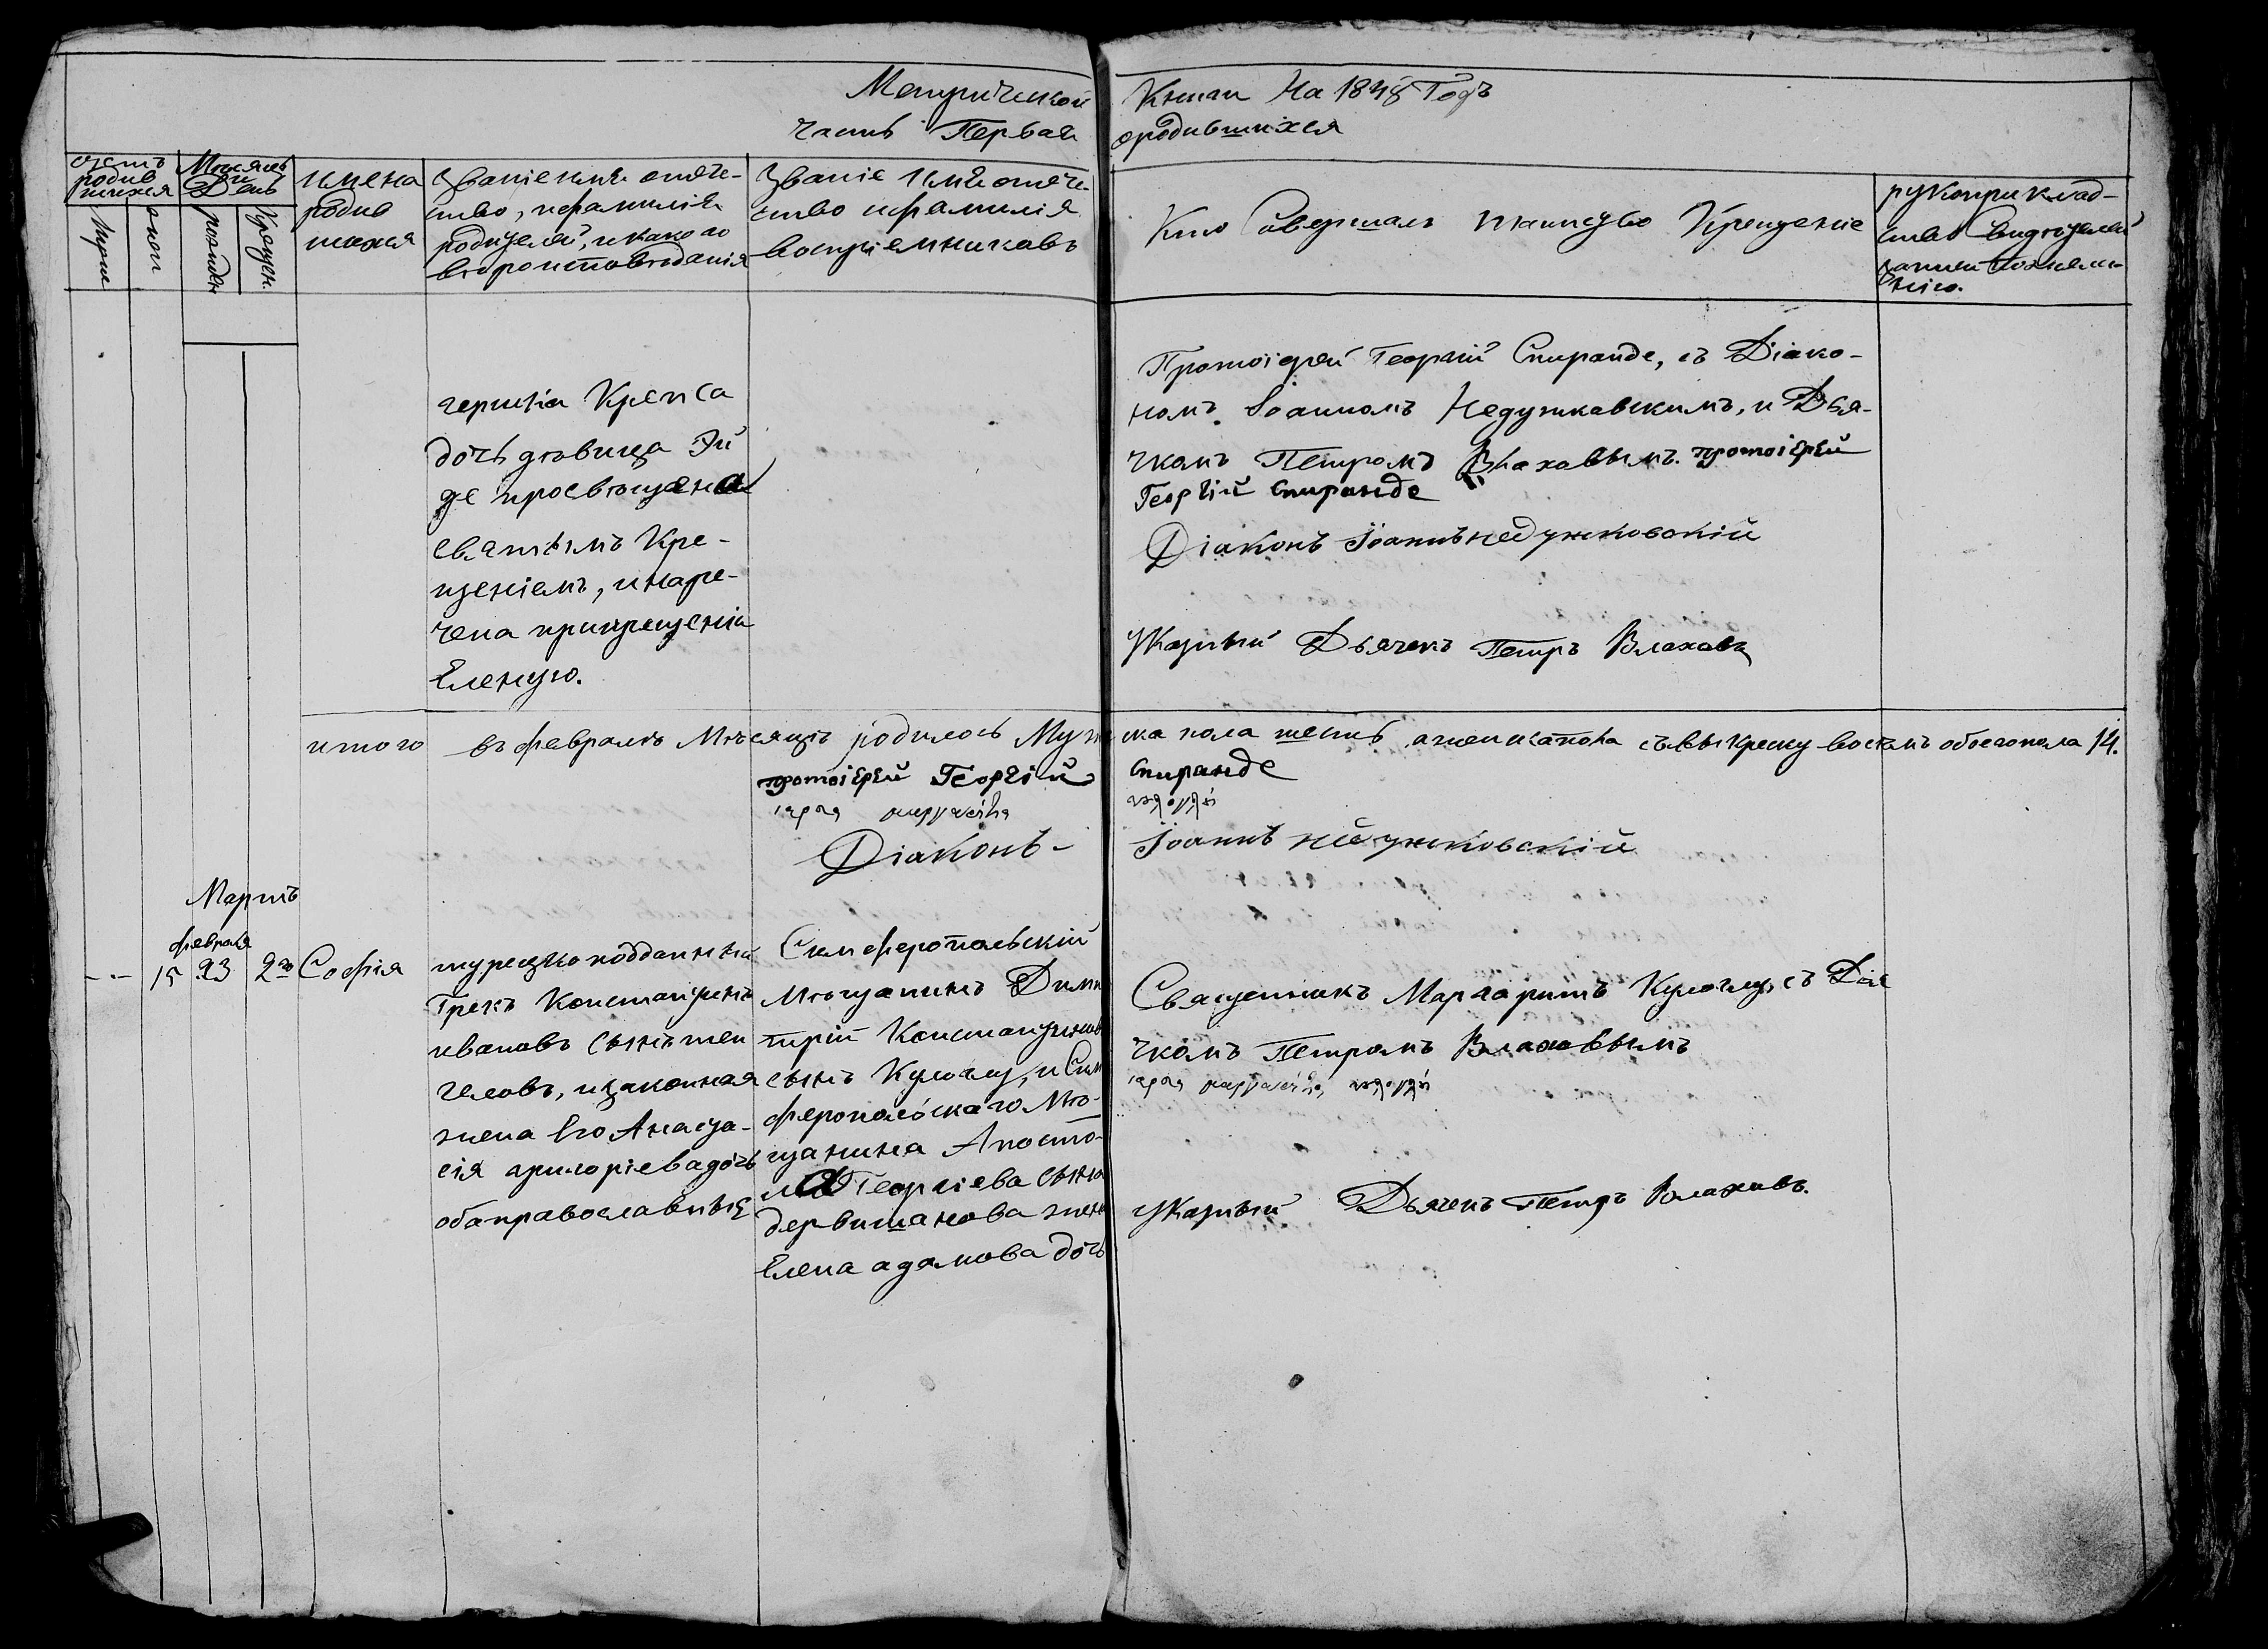 Метрической Книги На 1848 Годъ
Часть Первая о родившихся
счетъ родив шихся
Мужеск
женск
Месяцъ и День
рожден
Крещен.
имена
родив
шихся
Званіе имя отече-
ство, и фамилія
родителей, и какого
вероисповеданія
Званіе имя отече-
ство и фамилія
воспріемниковъ
Кто Совершалъ таинство Крещеніе
рукоприклад-
ство Свидетелей
записи
чершкіа Крепса
дочь девица Эй
де просвещена
святымъ Кре-
щеніемъ, и наре-
чена при крещеніи
Еленую.
Протоіерей Георгій Спиранде, съ Діако-
номъ Іоанномъ Недужкавскимъ, и Дья-
чкомъ Петромъ Влаховымъ. протоіерей
Георгій Спиранде
Діаконъ Іоаннъ недужковскій
Указный Дьячекъ Петръ Влаховъ
итого въ февралѣ Мѣсяцѣ родилось Мужска пола шесть а женска пола восемь обоего пола 14.
протоіерей Георгій Спиранде
Діаконъ Іоаннъ недужковскій
Мартъ
февраля
-.- 15 23 2го София
турецко подданный
Грекъ Константинъ
ивановъ сынъ мен
человъ, и законная
жена Его Анаста-
сія григоріева дочь
оба православные
Симферопольскій
Мѣщанинъ Дими
трій Константиновъ
сынъ Кумоглу, и Сим
феропольскаго Мѣ-
щанина Апосто-
ла Георгіева сына
дервишанова жена
Елена адамова дочь
Священникъ Маргаритъ Кумоглу, съ Дья
чкомъ Петромъ Влаховымъ
Указный Дьячекъ Петръ Влаховъ.